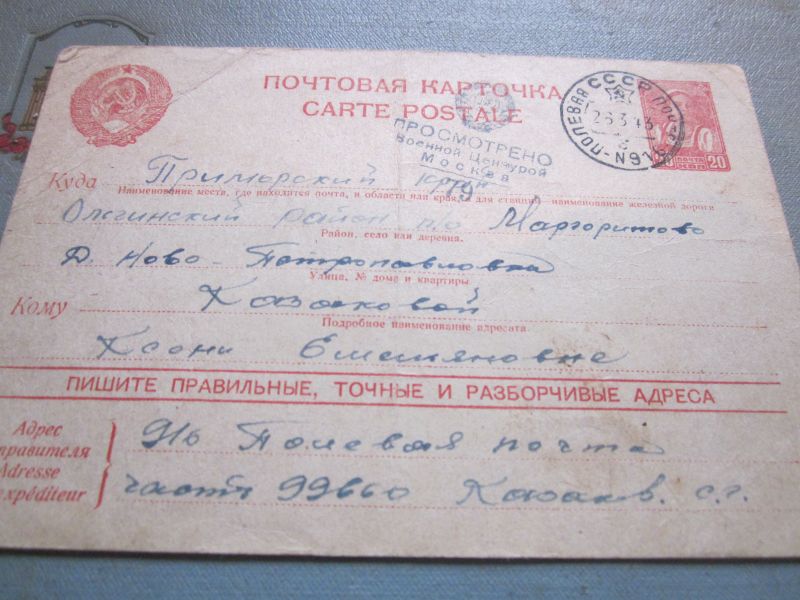 ПОЧТОВАЯ КАРТОЧКА
CARTE POSTALE
СССР
ПОЛЕВАЯ ПОЧТ
26 3 43
№916
ПОЧТА
20 КОП 20
ПРОСМОТРЕНО
Военной Цензурой
Москва
Куда Приморский край
Наименование места, где находится почта, и области или края, а для станции—наименование железной дороги
Ольгинский район п/о Маргоритово
Район, село или деревня.
Д. Ново-Петропавловка
Улица, № дома и квартиры
Кому Казаковой
Подробное наименование адресата
Ксени Емельяновне
ПИШИТЕ ПРАВИЛЬНЫЕ, ТОЧНЫЕ И РАЗБОРЧИВЫЕ АДРЕСА
Адрес
правителя
Adresse
expéditeur
916 Полевая почта
часть 99660 Казаков. с. г.